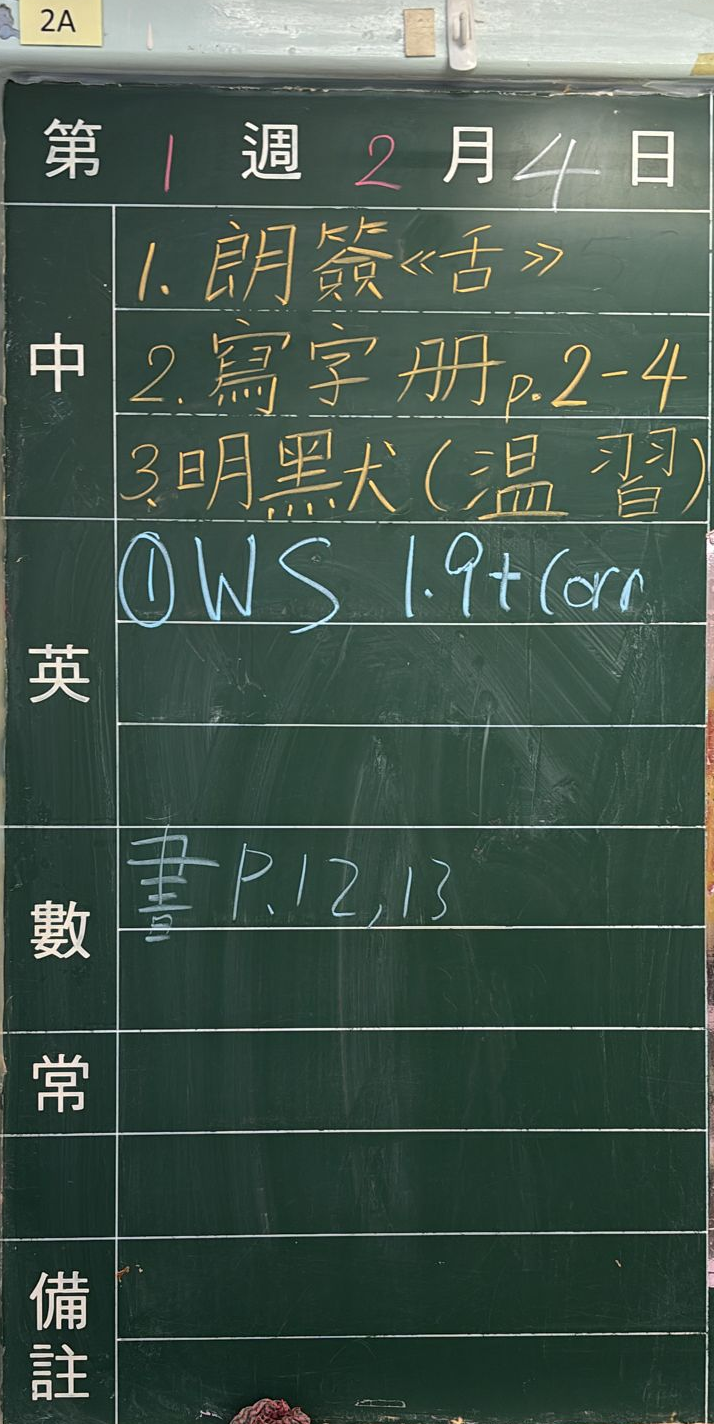 2A
第 1 週 2 月 4 日
中
1. 朗簽《舌》
2. 寫字册 p.2-4
3. 明默(温習)
英
① WS 1.9+Corr
數
書 P.12,13
常
備註